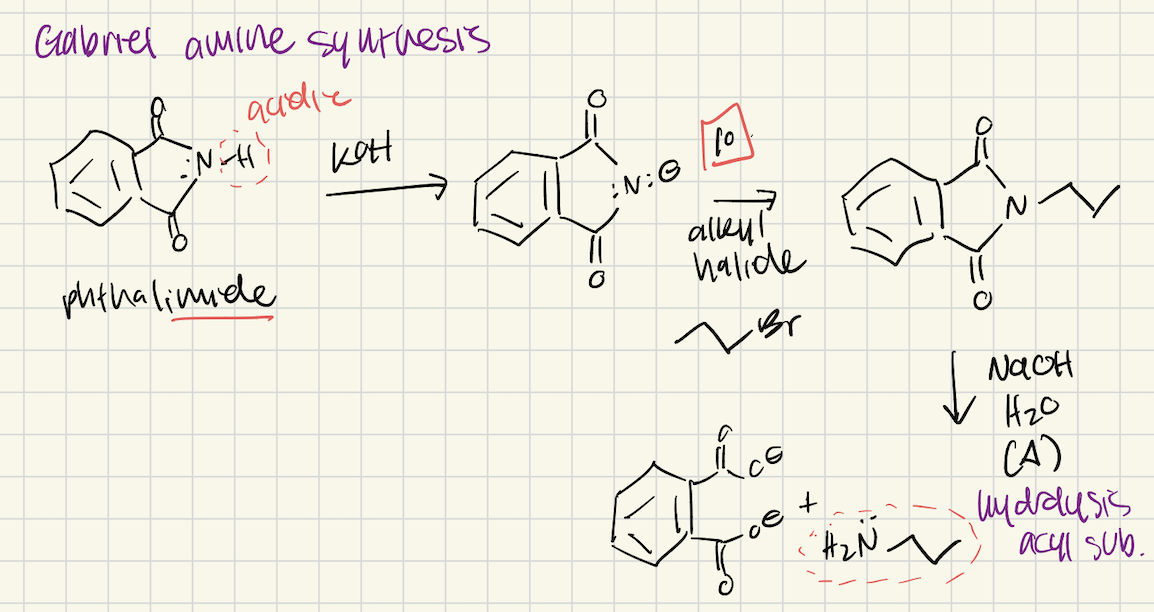 Gabriel amine synthesis
acidic
O
N-H
O
phthalimide
KOH
O
:N:⊖
O
1o
alkyl
halide
Br
O
N
O
NaOH
H2O
(Δ)
hydrolysis
acyl sub.
O
O⊖
O⊖
O
+
H2N̈